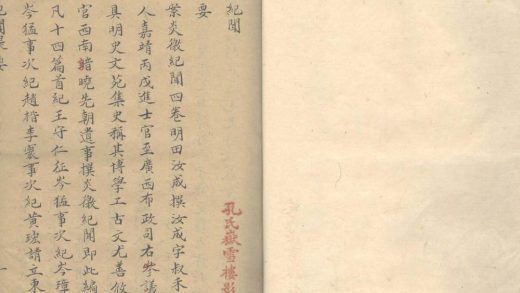 紀聞
孔氏嶽雪樓影
要
案炎徼紀聞四卷明田汝成撰汝成字叔禾
人嘉靖丙戌進士官至廣西布政司右參議
具明史文苑集史稱其博學工古文尤善敘
官西南諳曉先朝遺事撰炎徼紀聞即此編
凡十四篇首紀王守仁征岑猛事次紀岑璋
岑猛事次紀趙楷李寰事次紀黃請立東
一